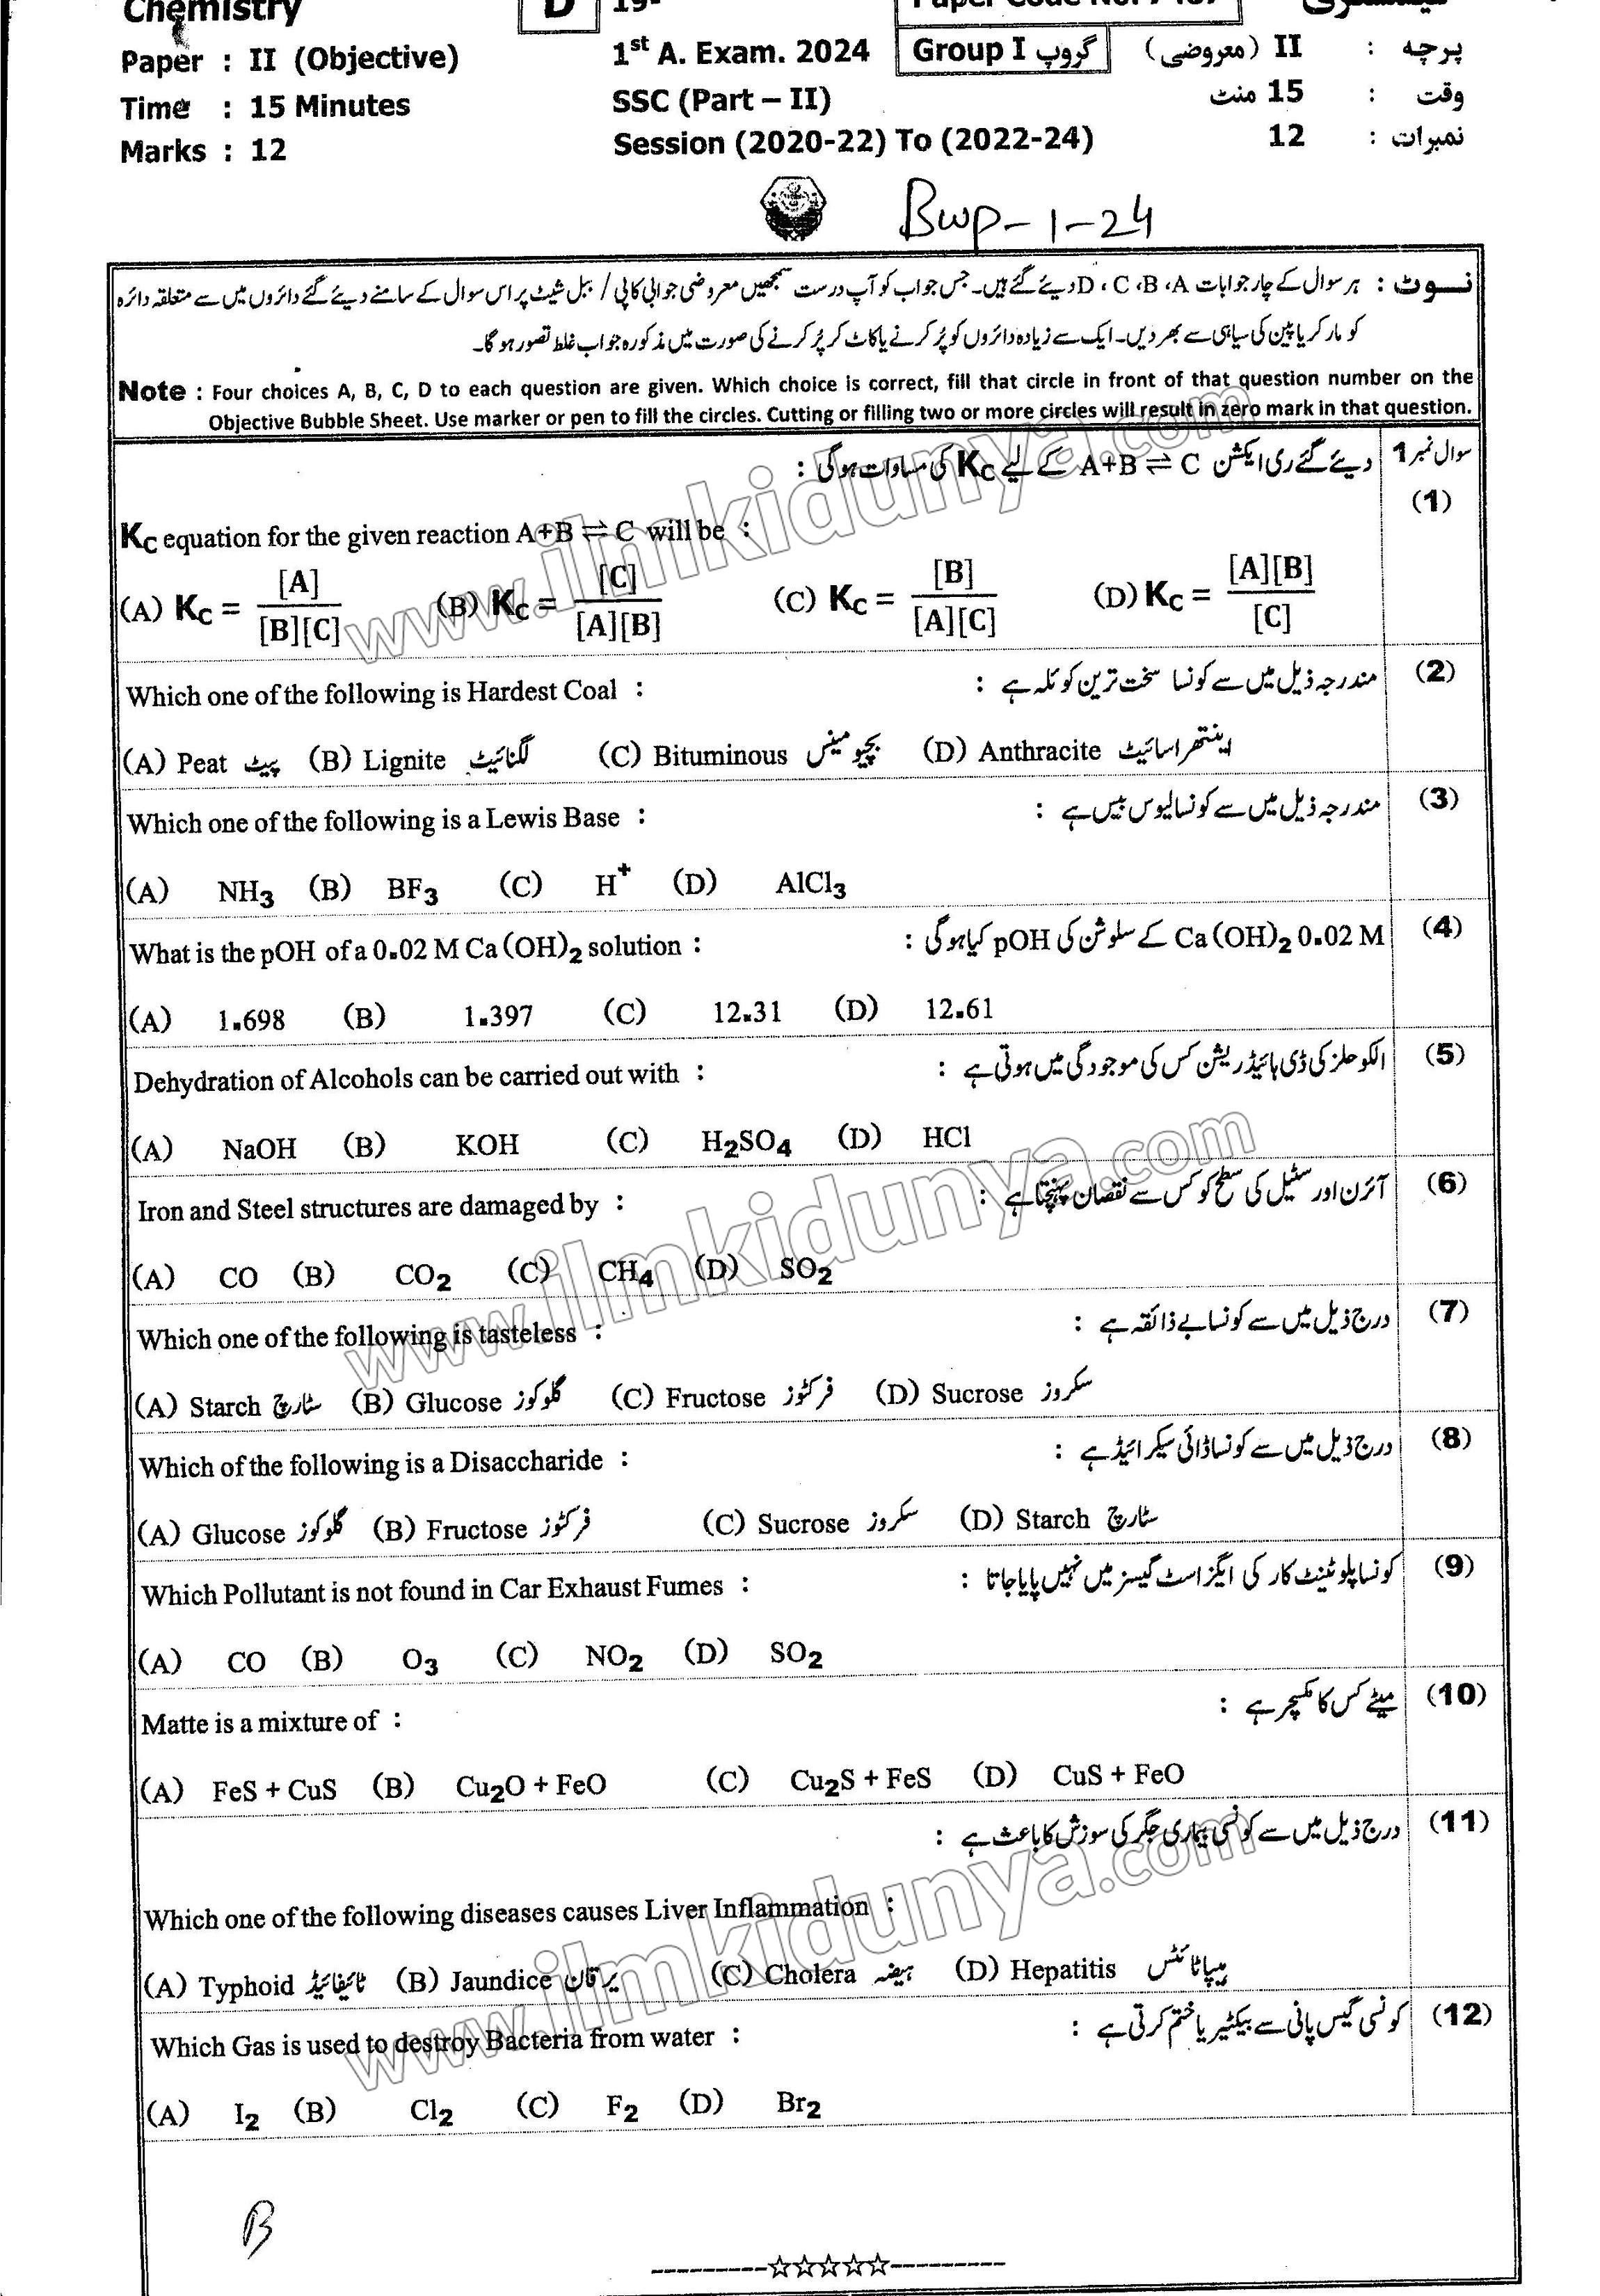 Chemistry
D
Paper : II (Objective)
1st A. Exam. 2024
Group I گروپ
پرچہ : II (معروضی)
Time : 15 Minutes
SSC (Part – II)
وقت : 15 منٹ
Marks : 12
Session (2020-22) To (2022-24)
نمبرات : 12
Bwp-1-24
نوٹ : ہر سوال کے چار جوابات A، B، C، D دیئے گئے ہیں۔ جس جواب کو آپ درست سمجھیں معروضی جوابی کاپی / ببل شیٹ پر اس سوال کے سامنے دیئے گئے دائروں میں سے متعلقہ دائرہ
کو مارکر یا پین کی سیاہی سے بھر دیں۔ ایک سے زیادہ دائروں کو پُر کرنے یا کاٹ کر پُر کرنے کی صورت میں مذکورہ جواب غلط تصور ہو گا۔
Note : Four choices A, B, C, D to each question are given. Which choice is correct, fill that circle in front of that question number on the
Objective Bubble Sheet. Use marker or pen to fill the circles. Cutting or filling two or more circles will result in zero mark in that question.
سوال نمبر 1
دیئے گئے ری ایکشن A+B ⇌ C کے لیے KC کی مساوات ہوگی :
(1)
KC equation for the given reaction A+B ⇌ C will be :
(A) KC = [A]/[B][C] (B) KC = [C]/[A][B] (C) KC = [B]/[A][C] (D) KC = [A][B]/[C]
(2) مندرجہ ذیل میں سے کونسا سخت ترین کوئلہ ہے :
Which one of the following is Hardest Coal :
(A) Peat پیٹ (B) Lignite لگنائیٹ (C) Bituminous بچیومینس (D) Anthracite اینتھراسائیٹ
(3) مندرجہ ذیل میں سے کونسا لیوس بیس ہے :
Which one of the following is a Lewis Base :
(A) NH3 (B) BF3 (C) H+ (D) AlCl3
(4) 0.02 M Ca(OH)2 کے سلوشن کی pOH کیا ہوگی :
What is the pOH of a 0.02 M Ca(OH)2 solution :
(A) 1.698 (B) 1.397 (C) 12.31 (D) 12.61
(5) الکوحلز کی ڈی ہائیڈریشن کس کی موجودگی میں ہوتی ہے :
Dehydration of Alcohols can be carried out with :
(A) NaOH (B) KOH (C) H2SO4 (D) HCl
(6) آئرن اور سٹیل کی سطح کو کس سے نقصان پہنچتا ہے :
Iron and Steel structures are damaged by :
(A) CO (B) CO2 (C) CH4 (D) SO2
(7) درج ذیل میں سے کونسا بے ذائقہ ہے :
Which one of the following is tasteless :
(A) Starch سٹارچ (B) Glucose گلوکوز (C) Fructose فرکٹوز (D) Sucrose سکروز
(8) درج ذیل میں سے کونسا ڈائی سیکرائیڈ ہے :
Which of the following is a Disaccharide :
(A) Glucose گلوکوز (B) Fructose فرکٹوز (C) Sucrose سکروز (D) Starch سٹارچ
(9) کونسا پلوٹینٹ کار کی ایگزاسٹ گیسز میں نہیں پایا جاتا :
Which Pollutant is not found in Car Exhaust Fumes :
(A) CO (B) O3 (C) NO2 (D) SO2
(10) میٹے کس کا مکسچر ہے :
Matte is a mixture of :
(A) FeS + CuS (B) Cu2O + FeO (C) Cu2S + FeS (D) CuS + FeO
(11) درج ذیل میں سے کونسی بیماری جگر کی سوزش کا باعث ہے :
Which one of the following diseases causes Liver Inflammation :
(A) Typhoid ٹائیفائیڈ (B) Jaundice یرقان (C) Cholera ہیضہ (D) Hepatitis ہیپاٹائٹس
(12) کونسی گیس پانی سے بیکٹیریا ختم کرتی ہے :
Which Gas is used to destroy Bacteria from water :
(A) I2 (B) Cl2 (C) F2 (D) Br2
B
www.ilmkidunya.com
www.ilmkidunya.com
www.ilmkidunya.com